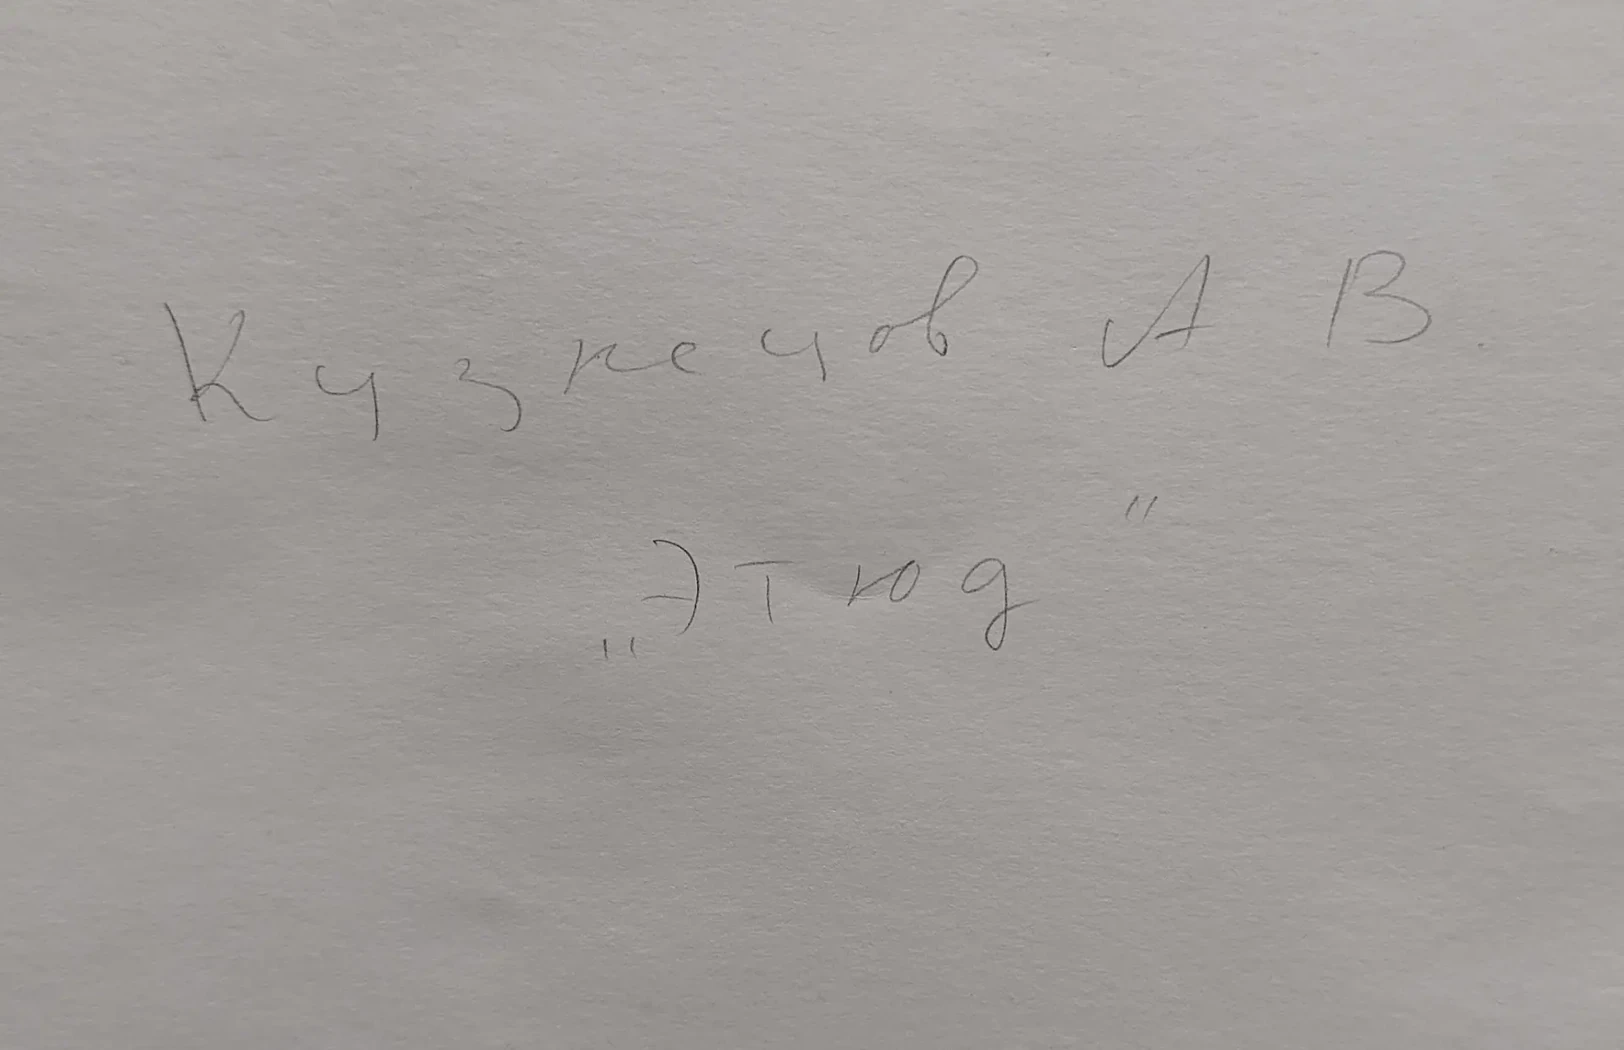 Кузнецов А В.
„Этюд"